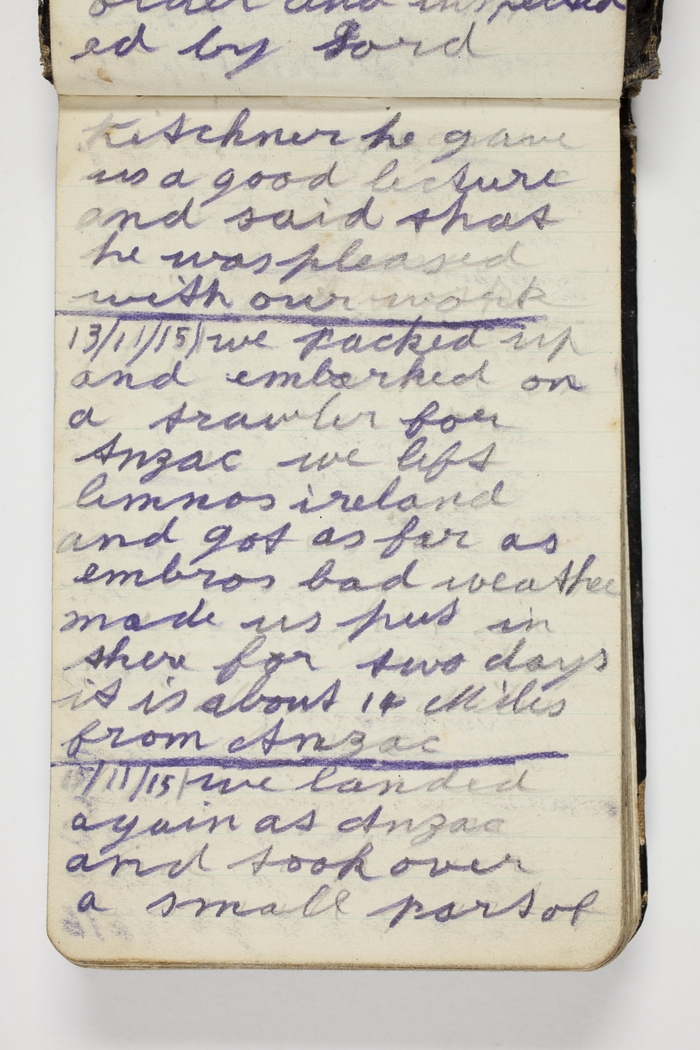 order and inspected
ed by Lord
Kitchner he gave
us a good lecture
and said that
he was pleased
with our work
13/11/15) we packed up
and embarked on
a trawler for
Anzac we left
limnos ireland
and got as far as
embros bad weather
made us put in
there for two days
it is about 14 Miles
from Anzac
/11/15) we landed
again at Anzac
and took over
a small part of